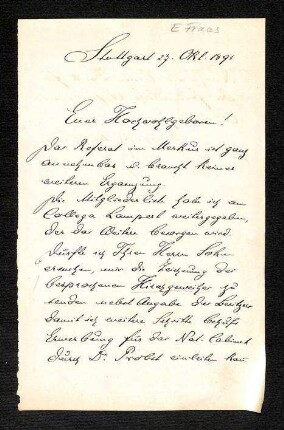 E Fraas
Stuttgart 27. Okt. 1891
Euer Hochwohlgeboren!
Das Referat im Merkur ist ganz
annehmbar u. braucht keiner
weiteren Ergänzung.
Die Mitgliederlisten hab ich an
Collega Lampert weitergegeben,
der das Weitere besorgen wird.
Dürfte ich Ihren Herrn Sohn
ersuchen, mir die Zeichnung der
besprochenen Hirschgeweihe zu
senden nebst Angabe der Besitzer
damit ich weitere Schritte behufs
Erwerbung für das Nat. Cabinet
durch Dr. Probst einleiten kan